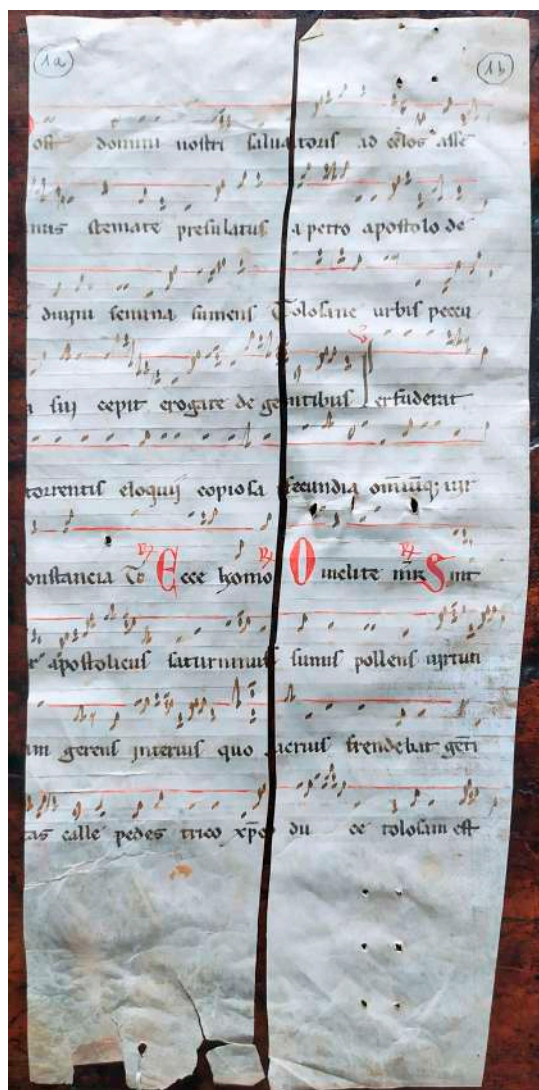 1a 1b
ost domini nostri saluatoris ad celos asse
stemate presulatus a petro apostolo de
diuini semina sumens Tolosane urbis peccu
a sui cepit erogare de gentibus V Perfuderat
torrentis eloquij copiosa fecundia
onstancia To R Ecce homo R O R Sint
apostolicus saturninus sumus pollens uirtuti
am gerens interius quo sacrius frendebat ge̅ti
tas calle pedes trico xp̅o du ce tolosam est